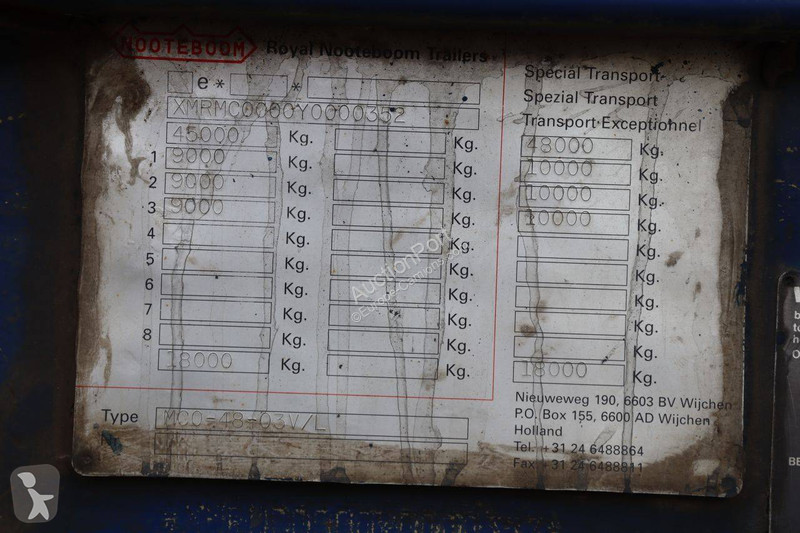 NOOTEBOOM Royal Nooteboom Trailers
e* *
XMRMC0000Y0000352
45000 Kg. Kg.
1 9000 Kg. Kg.
2 9000 Kg. Kg.
3 9000 Kg. Kg.
4 Kg. Kg.
5 Kg. Kg.
6 Kg. Kg.
7 Kg. Kg.
8 Kg. Kg.
18000 Kg. Kg.
Special Transport
Spezial Transport
Transport Exceptionnel
48000 Kg.
10000 Kg.
10000 Kg.
10000 Kg.
Kg.
Kg.
Kg.
Kg.
Kg.
18000 Kg.
Type MCO-48-03V/L
Nieuweweg 190, 6603 BV Wijchen
P.O. Box 155, 6600 AD Wijchen
Holland
Tel. +31 24 6488864
Fax +31 24 6488811
AuctionPort